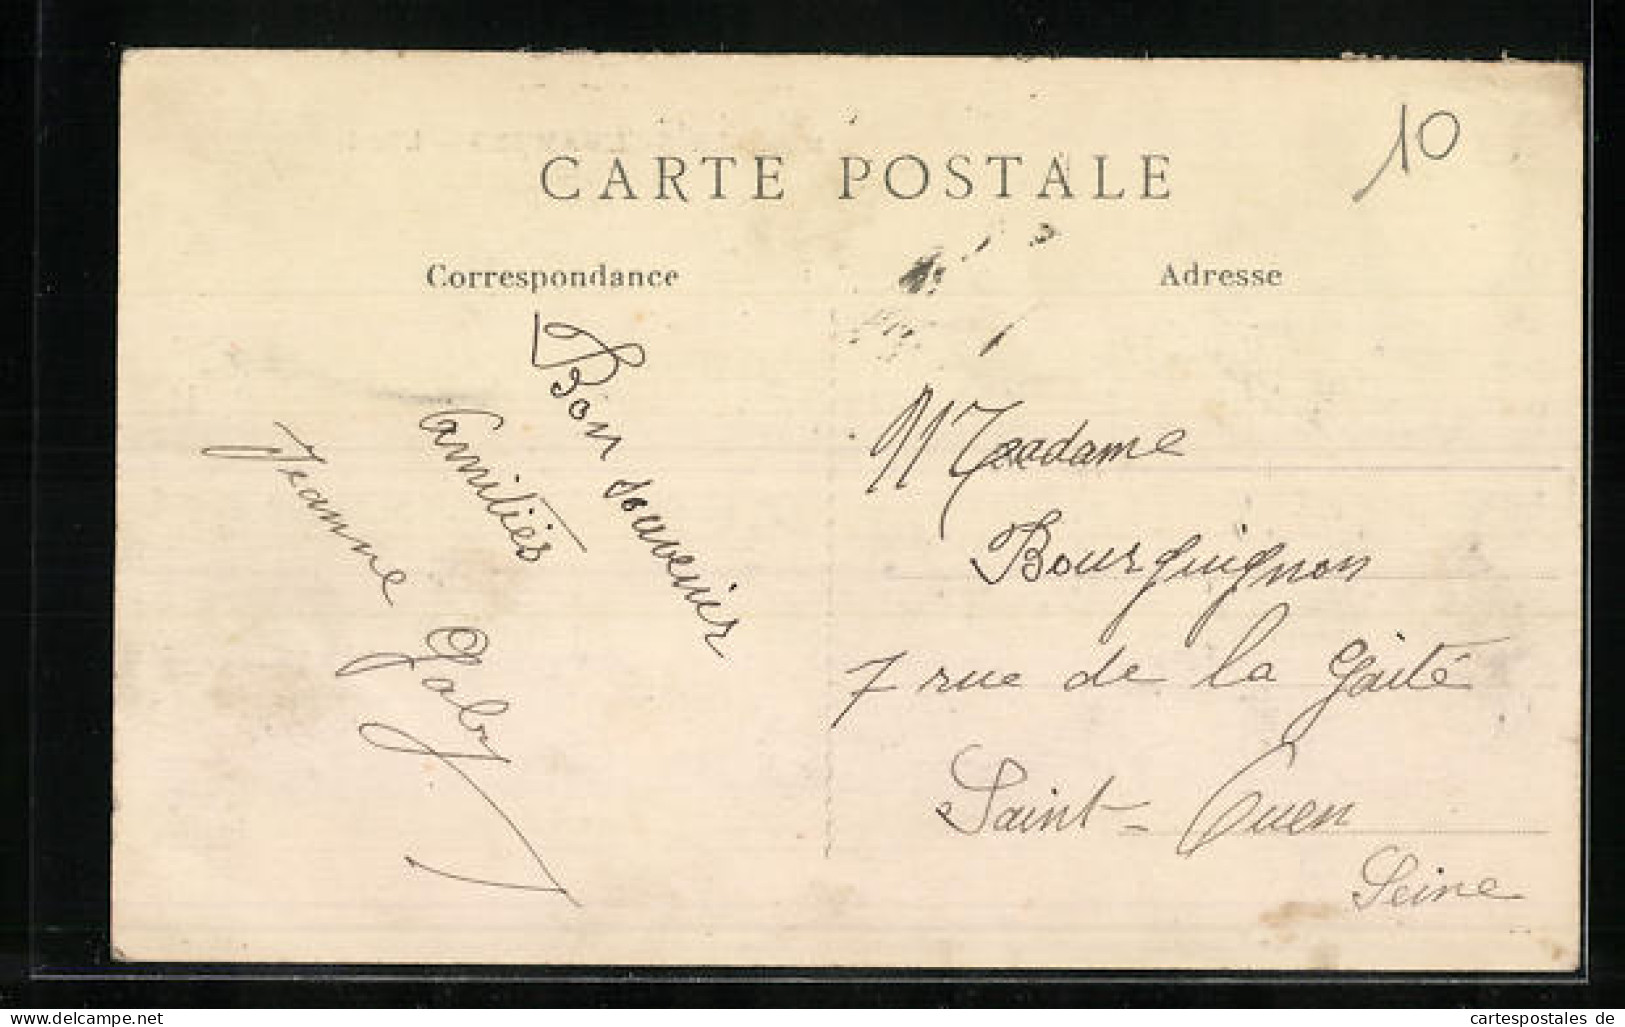 10
CARTE POSTALE
Correspondance
Adresse
Bon souvenir
amitiés
Jeanne Gaby
Madame
Bourguignon
7 rue de la Gaité
Saint-Ouen
Seine
www.cartespostales.com
cartespostales de